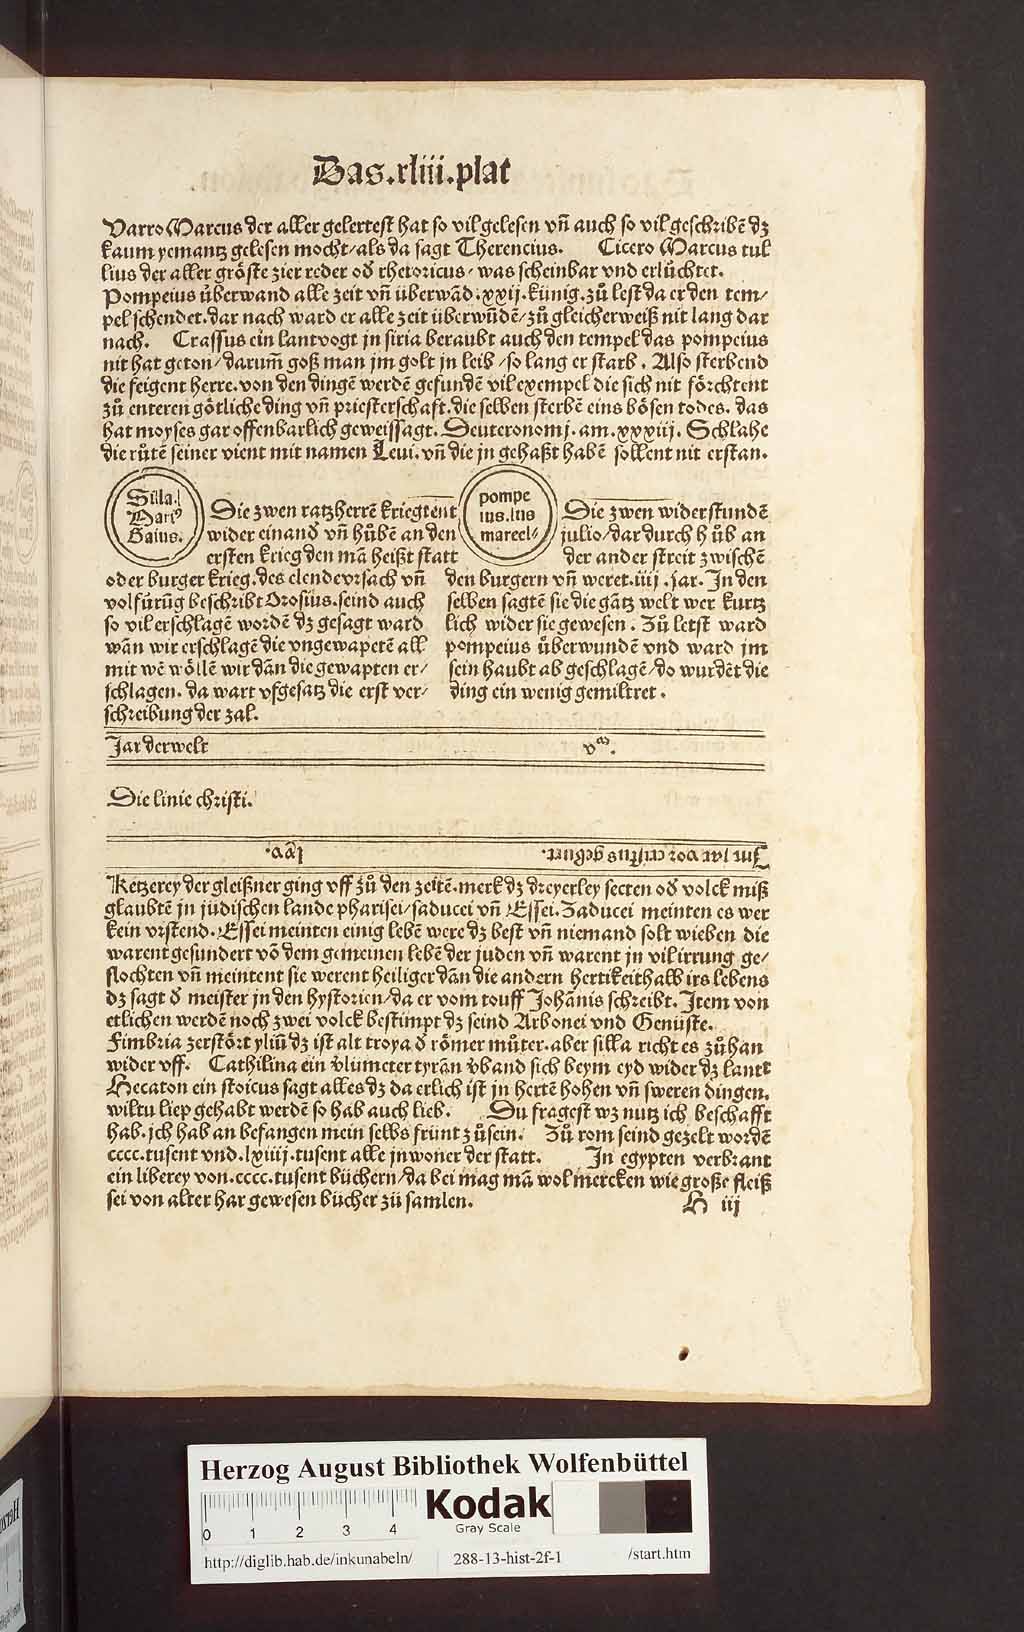 Das.xliii.plat
Varro Marcus der aller gelertest hat so vil gelesen vñ auch so vil geschribẽ dz
kaum yemantz gelesen mocht/als da sagt Therencius. Cicero Marcus tul
lius der aller gröste zier reder oď rhetoricus/was scheinbar vnd erlüchtet.
Pompeius überwand alle zeit vñ überwãd.xxij.künig.zů lest da er den tem/
pel schendet.dar nach ward er alle zeit überwũdẽ/zů gleicherweiß nit lang dar
nach. Crassus ein lantvogt jn siria beraubt auch den tempel das pompeius
nit hat geton/darum̃ goß man jm golt jn leib/so lang er starb. Also sterbend
die feigent herre.von den dingẽ werdẽ gefundẽ vil exempel die sich nit förchtent
zů enteren götliche ding vñ priesterschaft.die selben sterbẽ eins bösen todes. das
hat moyses gar offenbarlich geweissagt. Deuteronomj.am.xxxiij. Schlahe
die růtẽ seiner vient mit namen Leui.vñ die jn gehaßt habẽ sollent nit erstan.
Silla.
Mariꝰ
Gaius.
Die zwen ratzherrẽ kriegtent
wider einanď vñ hůbẽ an den
ersten krieg den mã heißt statt
oder burger krieg.des elende vrsach vñ
volfürũg beschribt Orosius.seind auch
so vil erschlagẽ wordẽ dz gesagt ward
wãn wir erschlagẽ die vngewapetẽ all
mit wẽ wöllẽ wir dãn die gewapten er/
schlagen. da wart vfgesatz die erst ver/
schreibung der zal.
pompe
ius.lus
marcel/
Die zwen widerstundẽ
julio/dar durch hůb an
der ander streit zwischẽ
den burgern vñ weret.iiij.jar. In den
selben sagtẽ sie die gãtz welt wer kurtz
lich wider sie gewesen. Zů letst ward
pompeius überwundẽ vnd ward jm
sein haubt ab geschlagẽ/do wurdẽt die
ding ein wenig gemiltret.
Jar der welt vᵐ.
Die linie christi.
Jm jar vor cristus geburt.
Ketzerey der gleißner ging vff zů den zeitẽ.merk dz dreyerley secten oď volck miß
glaubtẽ jn judischen lande pharisei/saducei vñ Essei. Zaducei meinten es wer
kein vrstend. Essei meinten einig lebẽ were dz best vñ niemand solt wieben die
warent gesundert võ dem gemeinen lebẽ der juden vñ warent jn vil irrung ge/
flochten vñ meintent sie werent heiliger dãn die andern hertikeithalb irs lebens
dz sagt ď meister jn den hystorien/da er vom touff Johãnis schreibt. Item von
etlichen werdẽ noch zwei volck bestimpt dz seind Arbonei vnd Genüste.
Fimbria zerstört yliũ dz ist alt troya ď römer můter.aber silla richt es zůhan
wider vff. Cathilina ein ṽlümeter tyrãn ṽband sich beym eyd wider dz lantt
Hecaton ein stoicus sagt alles dz da erlich ist jn hertẽ hohen vñ sweren dingen.
wiltu liep gehabt werdẽ so hab auch lieb. Du fragest wz nutz ich beschafft
hab.jch hab an befangen mein selbs frünt zůsein. Zů rom seind gezelt wordẽ
cccc.tusent vnd.lxiiij.tusent alle jnwoner der statt. In egypten verbrant
ein liberey von.cccc.tusent büchern/da bei mag mã wol mercken wie große fleiß
sei von alter har gewesen bücher zü samlen.
H iij
Herzog August Bibliothek Wolfenbüttel
0 1 2 3 4
Kodak
Gray Scale
http://diglib.hab.de/inkunabeln/ 288-13-hist-2f-1 /start.htm